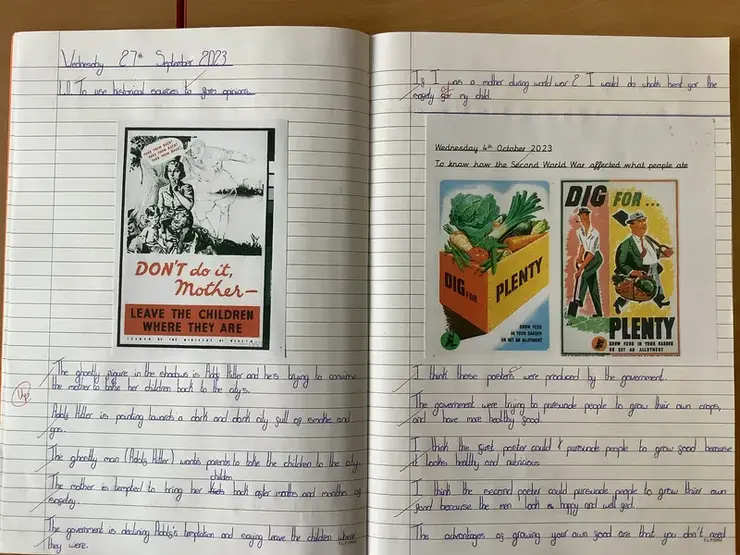 Wednesday 27th September 2023
L.I. To use historical sources to form opinions.
TAKE THEM BACK!
TAKE THEM BACK!
TAKE THEM BACK!
DON'T do it,
Mother—
LEAVE THE CHILDREN
WHERE THEY ARE
ISSUED BY THE MINISTRY OF HEALTH
The ghostly figure in the shadows is Adolf Hitler and he's trying to convince
the mother to take her children back to the citys.
Adolf Hitler is pointing towards a dark and dark city full of smoke and
gas.
The ghostly man (Adolf Hitler) wants parents to take the children to the city.
The mother is tempted to bring her children back after months and months of
The government is declining Adolf's temptation and saying leave the children where
they were.
If I was a mother during world war 2 I would do whats best for the
safety of my child.
Wednesday 4th October 2023
To know how the Second World War affected what people ate
DIG FOR PLENTY
GROW FOOD
IN YOUR GARDEN
OR GET AN ALLOTMENT
DIG FOR...
PLENTY
GROW FOOD IN YOUR GARDEN
OR GET AN ALLOTMENT
I think these posters were produced by the government.
The government were trying to pursuade people to grow their own crops,
and have more healthy food.
I think the first poster could pursuade people to grow food because
it looks healthy and nutricious
I think the second poster could pursuade people to grow their own
food because the men look happy and well fed.
The advantages of growing your own food are that you don't need